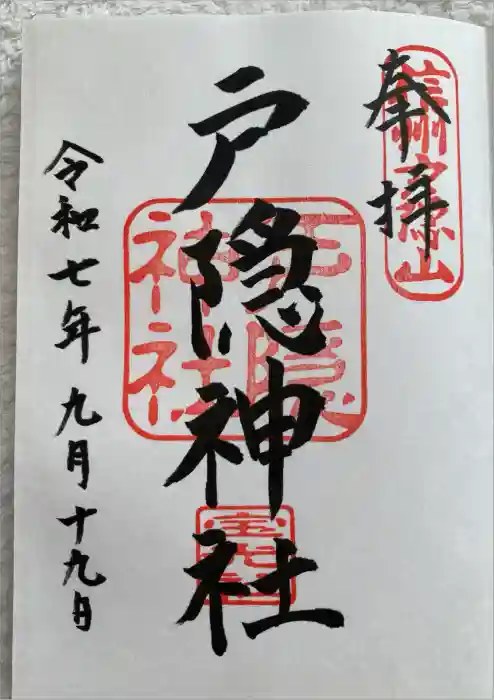 奉拝
信州戸隠山
戸隠神社
戸隠神社
宝光社
令和七年九月十九日